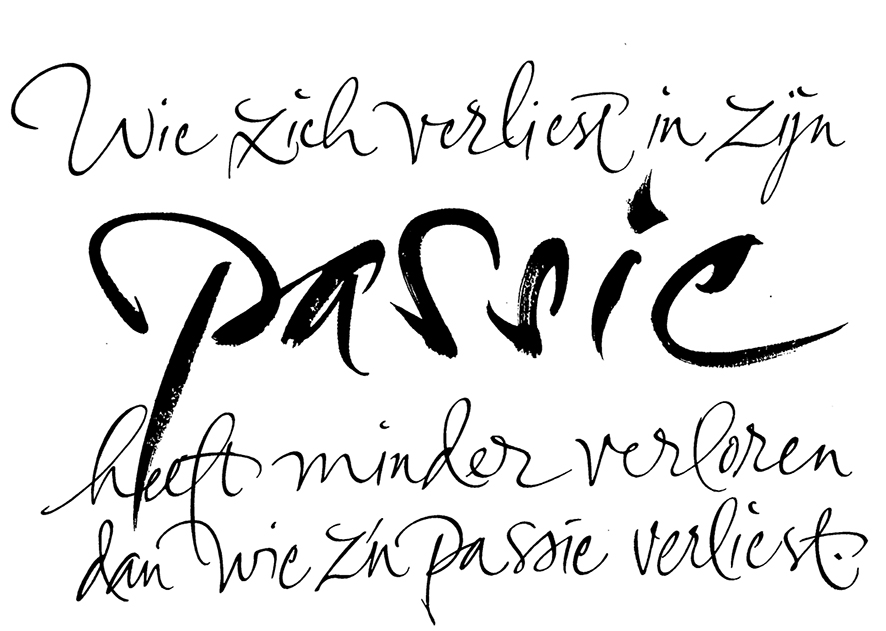 Wie zich verliest in zijn
passie
heeft minder verloren
dan wie z'n passie verliest.